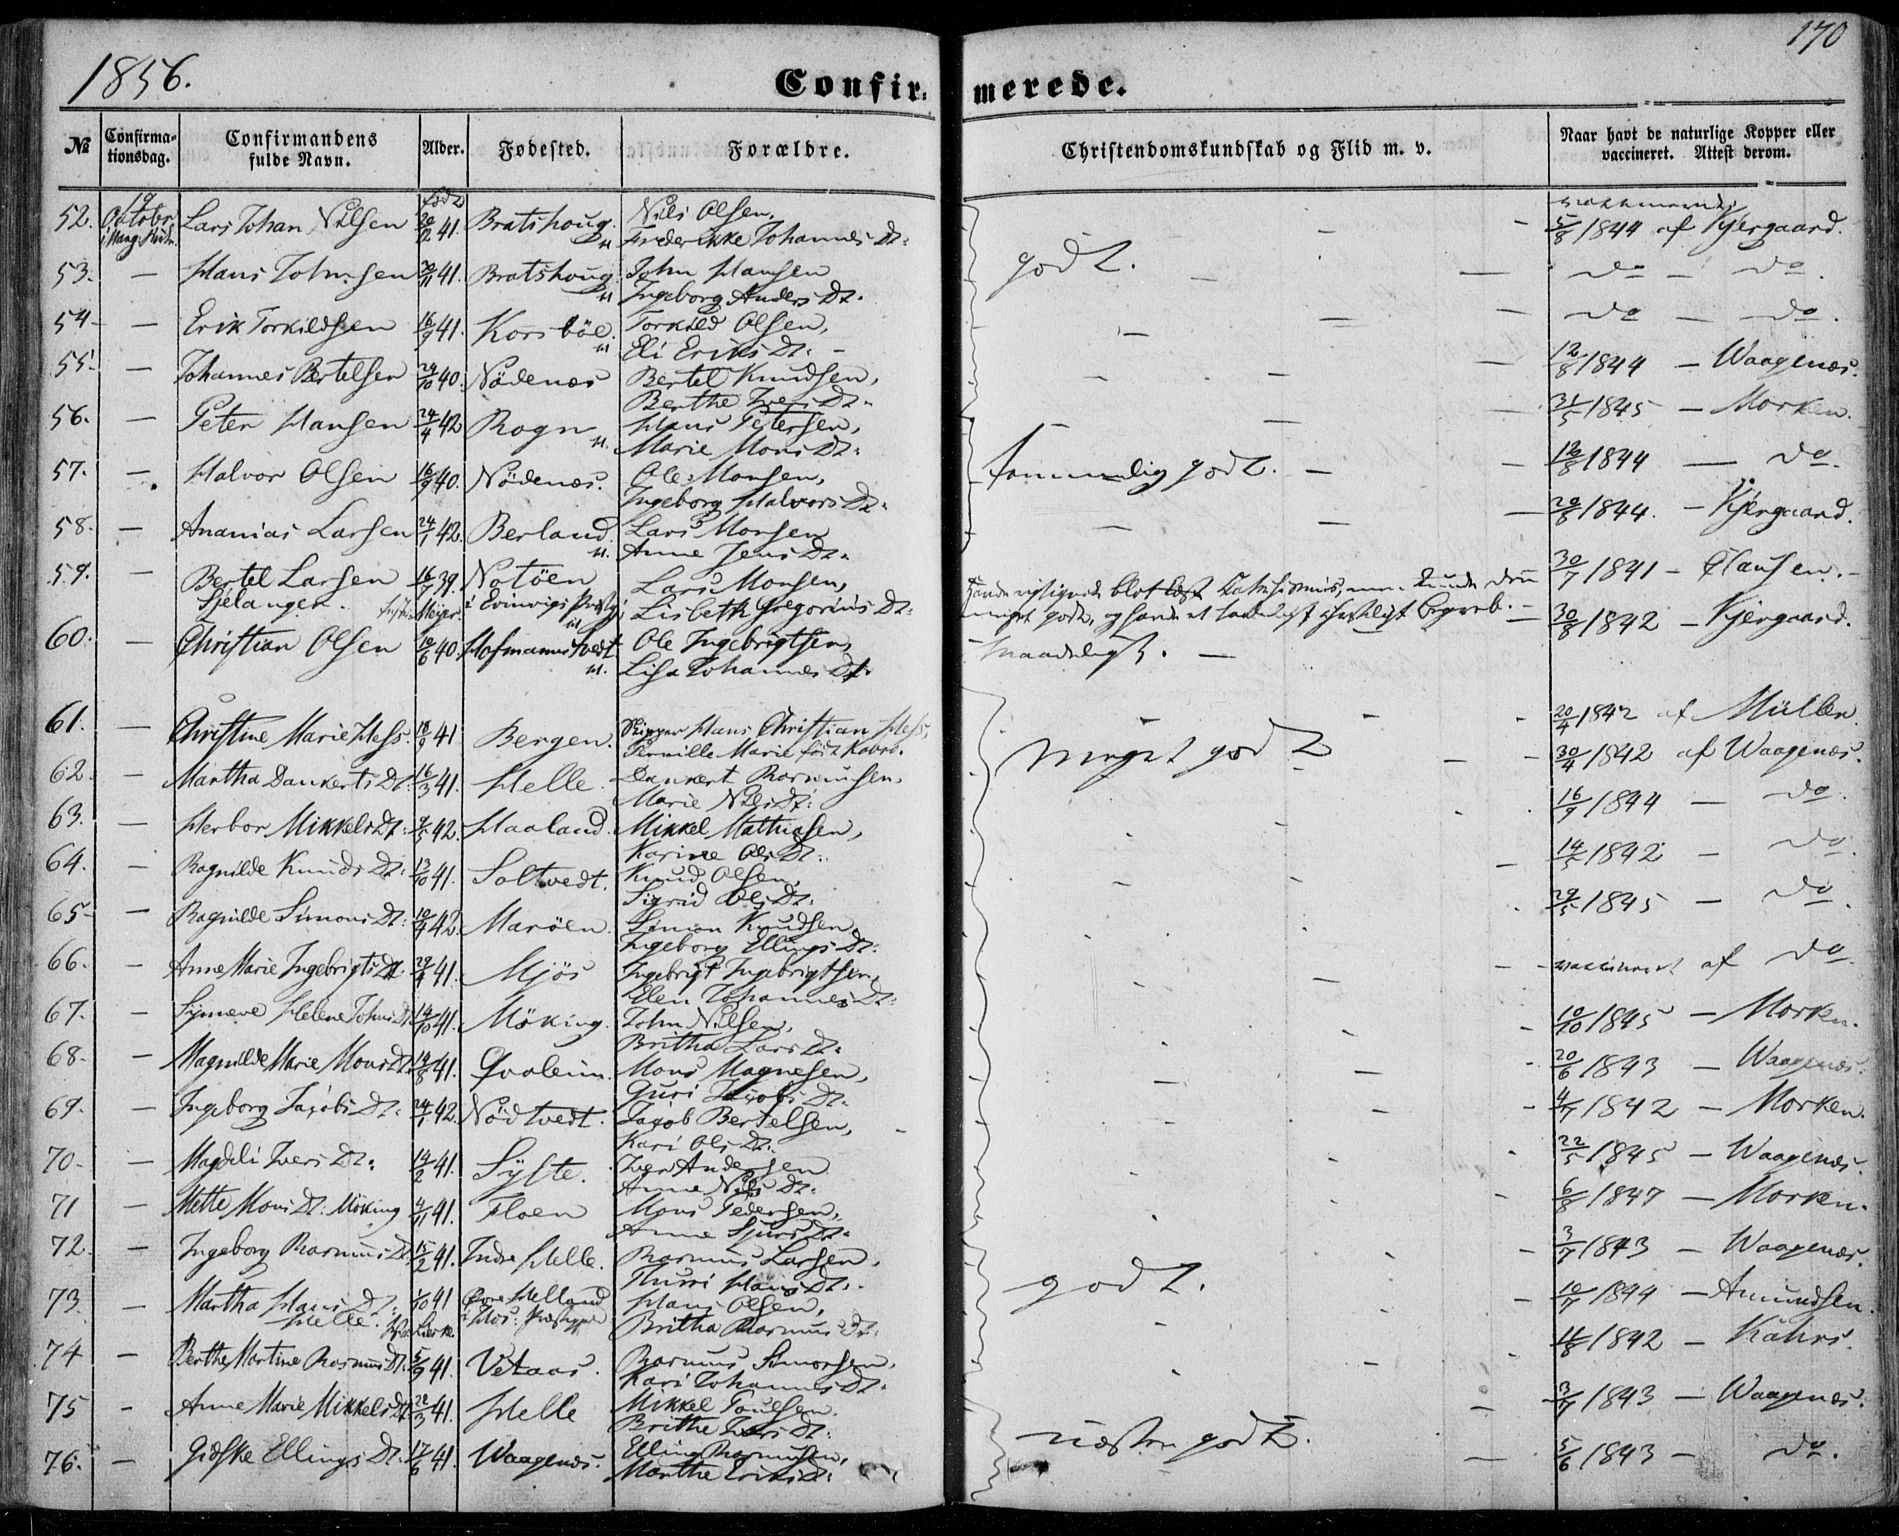 1856.
170
Confir= merede.
№ Confirma= tionsdag. Confirmandens fulde Navn. Alder. Fødested. Forældre. Christendomskundskab og Flid m. v. Naar havt de naturlige Kopper eller vaccineret. Attest derom.
52. October Lars Johan Nilsen født 20/2 41. Bratshoug Nils Olsen, 5/8 1844 af Kjergaard.
Frederikke Johannes Dt:
53. — Hans Johnsen 41. Bratshoug John Hansen godt. — do — do.
Ingeborg Anders Dt.
54 — Erik Torkildsen 16/9 41. Korsbøe. Torkild Olsen, — do — do.
Eli Eriks Dt: —
55. — Johannes Bertelsen 24/10 40. Nödenæs Bertel Knudsen, — 12/8 1844 — Waagenæs.
Berthe Ivers Dt:
56. — Peter Hansen 24/4 42 Rogn Hans Petersen, — 31/5 1845 — Morken.
Marie Mons Dt:
57. — Halvor Olsen 16/9 40. Nödenæs. Ole Monsen, temmelig godt. — 12/8 1844 — do.
Ingeborg Halvors Dt:
58. — Ananias Larsen 24/1 42. Berland. Lars Monsen — 20/8 1844. — Kjergaard.
Anne Jens Dt.
59. Bertel Larsen 16/7 39. Notöen Lars Monsen, 30/7 1841 — Clausen. —
Sjelanger. i Evinvigs Præstg. Lisbeth Gregorius Dt:
60. — Christian Olsen 10/6 40. Hofmannstvedt Ole Ingebrigtsen, maadeligt. — 30/8 1842 — Kjergaard.
Lisa Johannes Dt.
61. — Christine Marie Hess. 18/9 41 Bergen. Skipper Hans Christian Hess, 20/4 1842 af Müller.
Pernille Marie født
62. — Martha Dankerts Dt. 16/3 41. Helle. Dankert Rasmussen. meget godt — 30/4 1842 af Waagenæs.
Marie Nils Dt:
63. — Herbor Mikkels Dt: 42. Haaland. Mikkel Mathiasen, 16/9 1844 — do.
Karine Ols Dt:
64. — Ragnilde Knuds Dt: 13/10 41. Soltvedt. Knud Olsen, — 14/5 1842 — do.
Sigrid Ols Dt:
65 — Ragnilde Simons Dt: 10/4 42. Maröen. Simon Knudsen 29/5 1845 — do.
Ingeborg Ellings Dt:
66. — Anne Marie Ingebrigts Dt. 29/4 41. Mjös Ingebrigt Ingebrigtsen, — vaccineret af do.
Elen Johannes Dt:
67. — Synneve Helene Johns Dt. 14/10 41. Möking. John Nilsen, 10/10 1845 — Morken.
Britha Lars Dt:
68. — Magnilde Marie Mons Dt. 14/8 41. Qvaleim. Mons Magnesen, 20/6 1843 — Waagenæs.
Guri Jacobs Dt:
69. — Ingeborg Jacobs Dt: 24/1 42. Nödtvedt. Jacob Bertelsen, — 4/7 1842 — Morken.
Kari Ols Dt:
70. — Magdeli Ivers Dt: 14/2 41. Sylte. Iver Andersen 22/5 1845 — Waagenæs.
Anne Nils Dt:
71 — Mette Mons Dt: Möking 4/11 41. Floen Mons Pedersen, 6/8 1847 — Morken.
Anne Sjurs Dt:
72. — Ingeborg Rasmus Dt. 15/2 41. Indre Helle. Rasmus Larsen, 3/7 1843 — Waagenæs.
Thuri Hans Dt:
73. — Martha Hans Dt: 1/10 41 Øvre Helland Hans Olsen, godt. 10/7 1844 — Amundsen.
Helle. Britha Rasmus Dt:
74 — Berthe Martine Rasmus Dt. 5/9 41. Vetaas. Rasmus Simonsen, 11/8 1842 — Kahrs.
Kari Johannes Dt:
75 — Anne Marie Mikkels Dt. 22/3 41. Helle Mikkel Poulsen. — 3/7 1843 — Waagenæs.
Brithe Ivers Dt:
76. — Gidske Ellings Dt. 17/6 41. Waagenæs. Elling Rasmussen, næsten godt. — 5/6 1843 — do.
Marthe Eriks Dt: